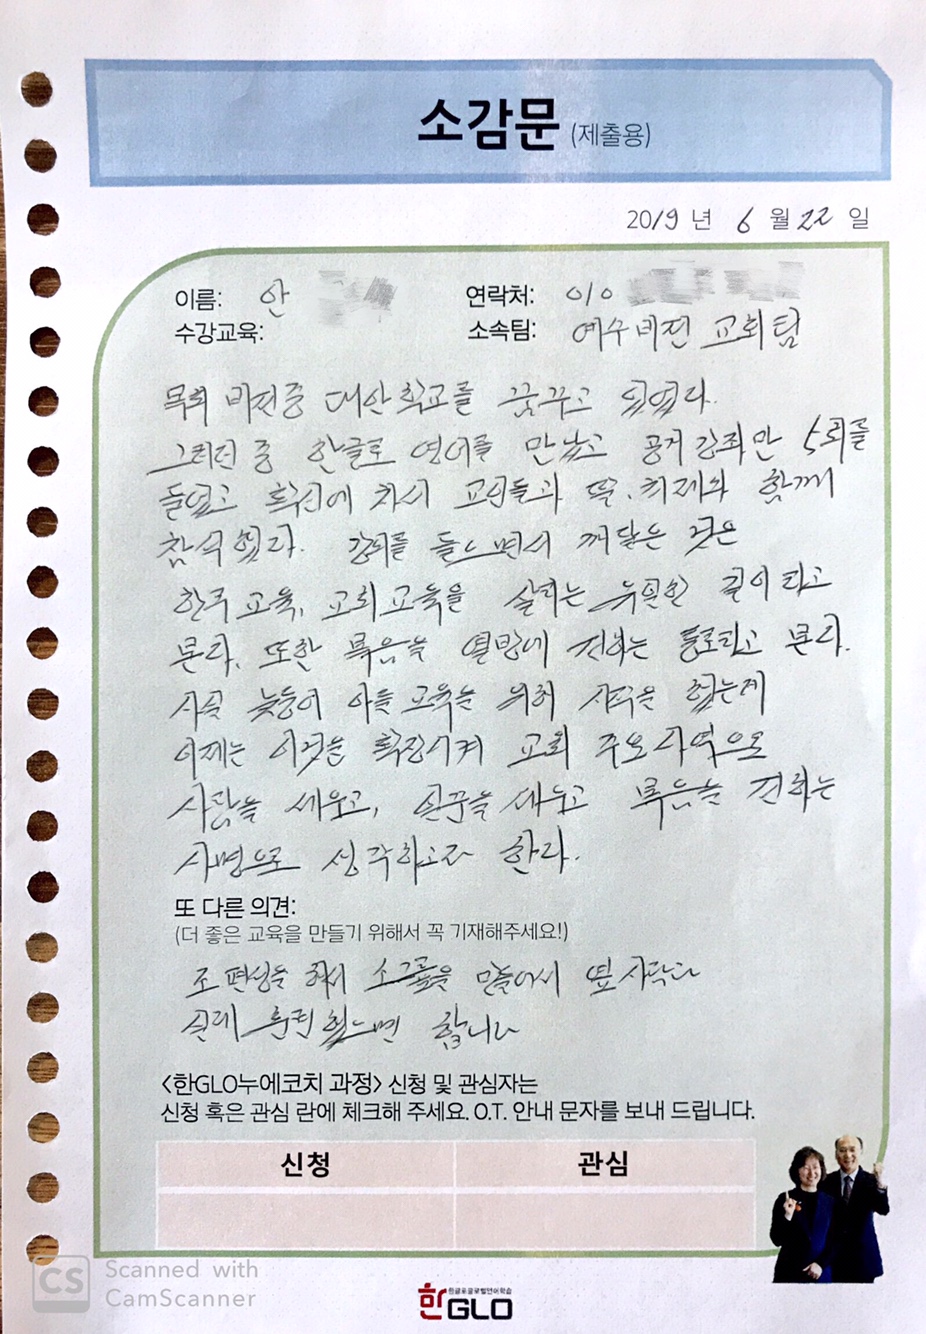 소감문 (제출용)
2019 년 6 월 22 일
이름: 안
연락처: 010
수강교육:
소속팀: 예수비전 교회팀
목회 비전중 대안학교를 꿈꾸고 있었다.
그러던 중 한글로 영어를 만났고 공개강좌만 5회를
들었고 확신에 차서 교인들과 딸, 처제와 함께
참석했다. 강의를 들으면서 깨달은 것은
한국교육, 교회교육을 살리는 유일한 길이라고
본다. 또한 복음을 열방에 전하는 통로라고 본다.
사실 늦둥이 아들 교육을 위해 시작을 했는데
이제는 이것을 확장시켜 교회 주요사역으로
사람을 세우고, 일꾼을 세우고 복음을 전하는
사명으로 생각하고자 한다.
또 다른 의견:
(더 좋은 교육을 만들기 위해서 꼭 기재해주세요!)
조 편성을 해서 소그룹을 만들어서 옆사람과
실제 훈련했으면 합니다
<한GLO누에코치 과정> 신청 및 관심자는
신청 혹은 관심 란에 체크해 주세요. O.T. 안내 문자를 보내 드립니다.
신청 관심
CS Scanned with
CamScanner
한글로글로벌언어학습
한GLO